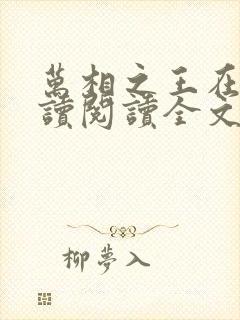 萬相之王在
讀閱讀全文
柳夢入